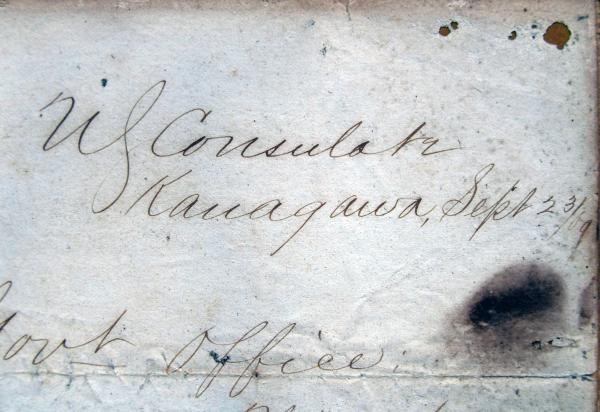 US Consulate
Kanagawa, Sept 23/
Govt Office